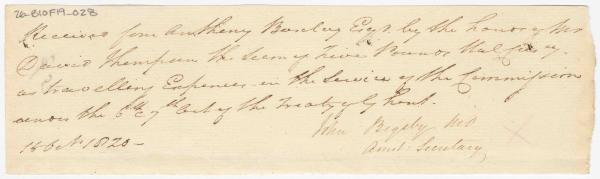 26-B10F19-028
Received from Anthony Barclay Esqr. by the hands of Mr
David Thompson the Sum of Five Pounds Hal Cury.
as travelling Expences in the Service of the Commission
under the 6th & 7th Art of the Treaty of Ghent.
John Bigsby MD
Assist: Secretary
18 Octr 1820-